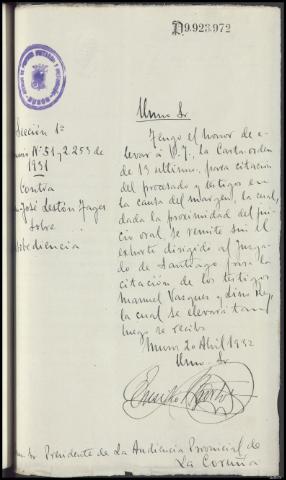 D9.923.972
Ilmo Sr
Sección 1ª
Nº 51 y 2.253 de
1931
Contra
José Lestón
Sobre
Tengo el honor de e-
levar á V.I., la Carta-orden
de 13 ultimo, para citación
del procesado y testigos en
la causa del margen, la cual,
dada la proximidad del jui-
cio oral, se remite sin el
exhorto dirigido al Juzga-
do de Santiago para la
citación de los testigos
Manuel Vasquez y Lino
la cual se elevará tan
luego se reciba
Muros 20 Abril 1932
Ilmo. Sr
Sr Presidente de La Audiencia Provincial de
La Coruña